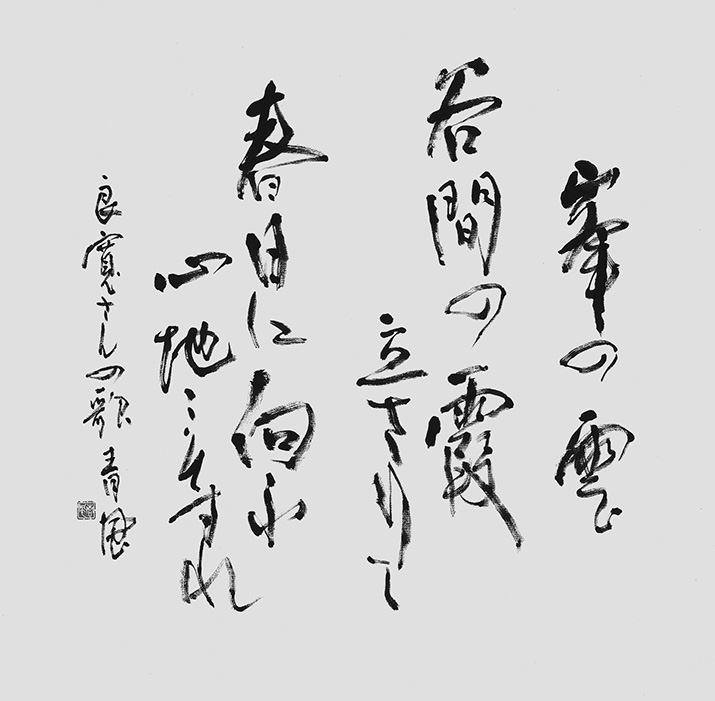 峯の雲
谷間の霞
立さりて
春日に向ふ
心地こそすれ
良寛さんの歌 青風